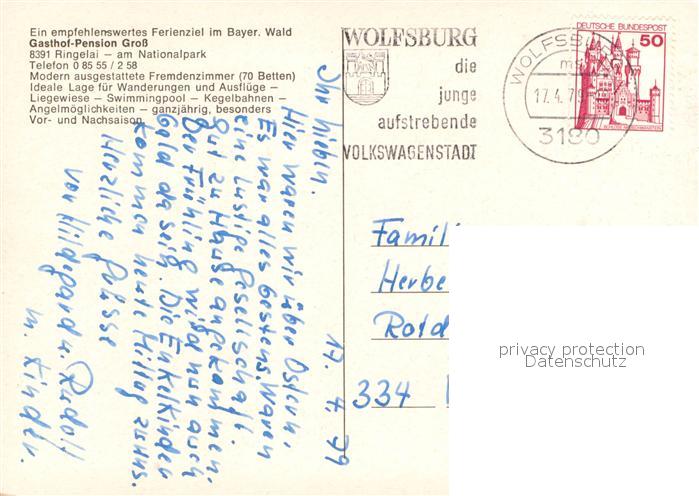 Ein empfehlenswertes Ferienziel im Bayer. Wald
Gasthof-Pension Groß
8391 Ringelai — am Nationalpark
Telefon 0 85 55 / 2 58
Modern ausgestattete Fremdenzimmer (70 Betten)
Ideale Lage für Wanderungen und Ausflüge —
Liegewiese — Swimmingpool — Kegelbahnen —
Angelmöglichkeiten — ganzjährig, besonders
Vor- und Nachsaison.
WOLFSBURG
die
junge
aufstrebende
VOLKSWAGENSTADT
WOLFSBU
17.4.79
3180
DEUTSCHE BUNDESPOST
50
17. 4. 79
Ihr Lieben.
Hier waren wir über Ostern.
Es war alles bestens. Waren
eine lustige Gesellschaft.
Gut zu Hause angekommen.
Der Frühling wird nun auch
bald da sein. Die Enkelkinder
kommen heute Mittag zu uns.
Herzliche Grüsse
von Hildegard u. Rudolf
m. Kinder.
Famili
Herbe
Rotd
334
privacy protection
Datenschutz